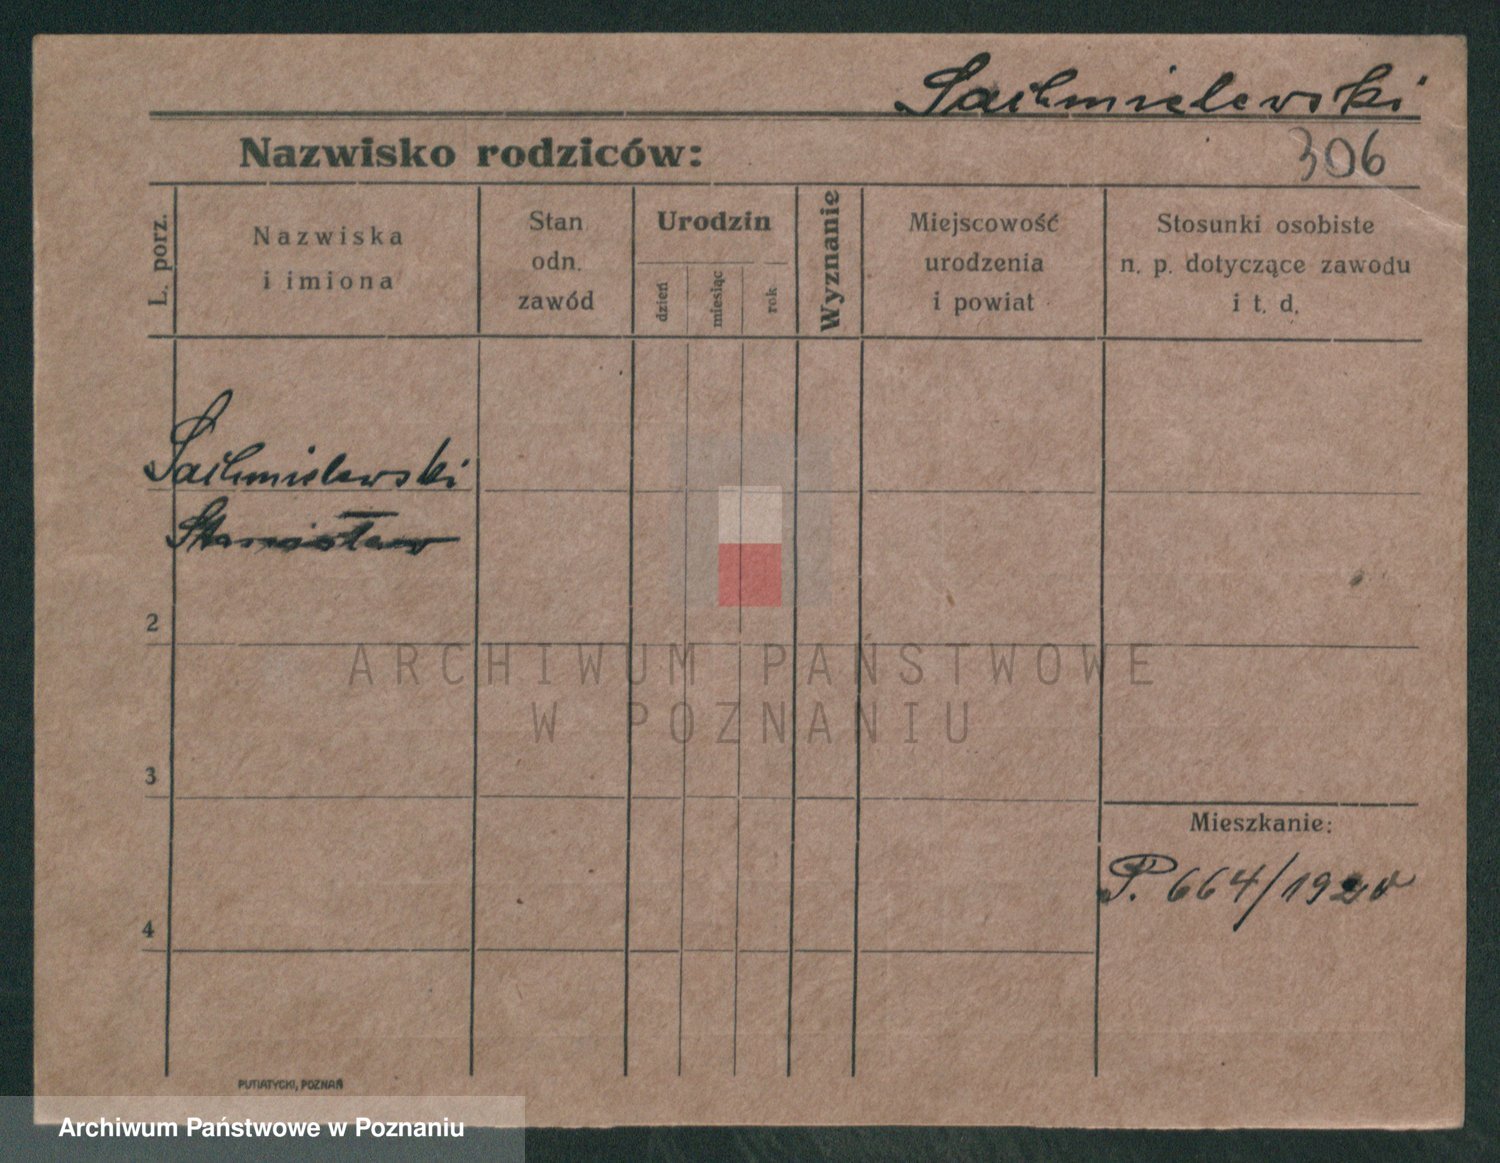 Sachmielewski
Nazwisko rodziców:
306
L. porz.
Nazwiska
i imiona
Stan
odn.
zawód
Urodzin
dzień
miesiąc
rok
Wyznanie
Miejscowość
urodzenia
i powiat
Stosunki osobiste
n. p. dotyczące zawodu
i t. d.
Sachmielewski
Stanisław
2
3
4
ARCHIWUM PAŃSTWOWE
W POZNANIU
Mieszkanie:
P. 664/1920
PUTIATYCKI, POZNAŃ
Archiwum Państwowe w Poznaniu